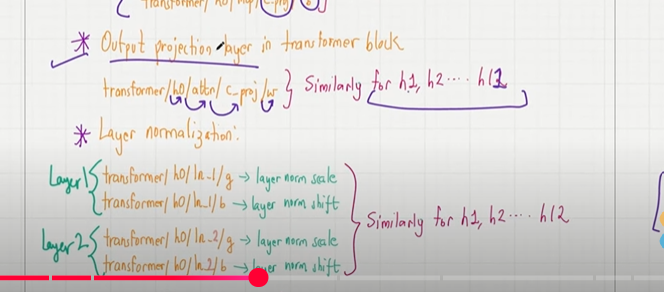 transformer/ h0/ mlp/ c-proj b
* Output projection layer in transformer block
transformer/h0/attn/ c_proj/w } Similarly for h1, h2.... h12
* Layer normalization:
Layer 1 { transformer/ h0/ ln_1/g → layer norm scale
transformer/ h0/ ln_1/b → layer norm shift
Similarly for h1, h2.... h12
Layer 2 { transformer/ h0/ ln_2/g → layer norm scale
transformer/ h0/ ln_2/b → layer norm shift